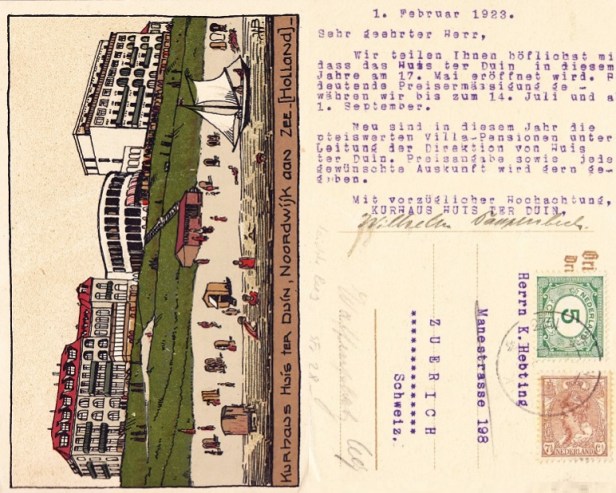 Kurhaus Huis ter Duin, Noordwijk aan Zee. [Holland]_
1. Februar 1923.
Sehr geehrter Herr,
Wir teilen Ihnen höflichst mi
dass das Huis ter Duin in diesem
Jahre am 17. Mai eröffnet wird.
deutende Preisermässigung ge-
währen wir bis zum 14. Juli und a
1. September.
Neu sind in diesem Jahr die
preiswerten Villa-Pensionen unter
Leitung der Direktion von Huis
ter Duin. Preisangabe sowie jede
gewünschte Auskunft wird gern ge-
geben.
Mit vorzüglicher Hochachtung,
KURHAUS HUIS TER DUIN,
Wilhelm
Herrn K. Hebting
Manestrasse 198
ZUERICH
Schweiz.
5
NEDERLAND